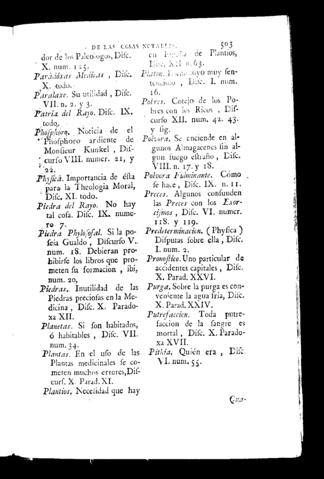 DE LAS COSAS NOTABLES. 503
dor de los Paleologos, Disc.
X. num. 125.
Paradoxas Medicas, Disc.
X. todo.
Paralaxe. Su utilidad, Disc.
VII. n. 2. y 3.
Patria del Rayo. Disc. IX.
todo.
Phosphoro. Noticia de el
Phosphoro ardiente de
Monsieur Kunkel, Dis-
curso VIII. numer. 21, y
22.
Physica. Importancia de ésta
para la Theologia Moral,
Disc. XI. todo.
Piedra del Rayo. No hay
tal cosa. Disc. IX. nume-
ro 7.
Piedra Phylosofal. Si la po-
seía Gualdo, Discurso V.
num. 18. Debieran pro-
hibirse los libros que pro-
meten su formacion, ibi,
num. 20.
Piedras. Inutilidad de las
Piedras preciosas en la Me-
dicina, Disc. X. Parado-
xa XII.
Planetas. Si son habitados,
ó habitables, Disc. VII.
num. 34.
Plantas. En el uso de las
Plantas medicinales se co-
meten muchos errores, Dis-
curs. X. Parad. XI.
Plantios. Necesidad que hay
en España de Plantios,
Disc. XII n. 63.
Platon. suyo muy sen-
tencioso, Disc. I. num.
16.
Pobres. Cotejo de los Po-
bres con los Ricos, Dis-
curso XII. num. 42. 43.
y sig.
Polvora. Se enciende en al-
gunos Almagacenes sin al-
gun fuego estraño, Disc.
VIII. n. 17. y 18.
Polvora Fulminante. Cómo
se hace, Disc. IX. n. 11.
Preces. Algunos confunden
las Preces con los Exor-
cismos, Disc. VI. numer.
118. y 119.
Predeterminacion. (Physica)
Disputas sobre ella, Disc.
I. num. 2.
Pronostico. Uno particular de
accidentes capitales, Disc.
X. Parad. XXVI.
Purga. Sobre la purga es con-
veniente la agua fria, Disc.
X. Parad. XXIV.
Putrefaccion. Toda putre-
faccion de la sangre es
mortal, Disc. X. Parado-
xa XVII.
Pithia. Quién era, Disc.
VI. num. 55.